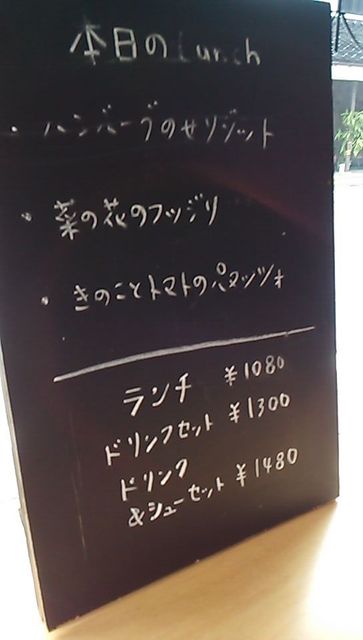 本日のLunch
・ハンバーグのせリゾット
・菜の花のフッジリ
・きのことトマトのパヌッツォ
ランチ ¥1080
ドリンクセット ¥1300
ドリンク
&シューセット ¥1480